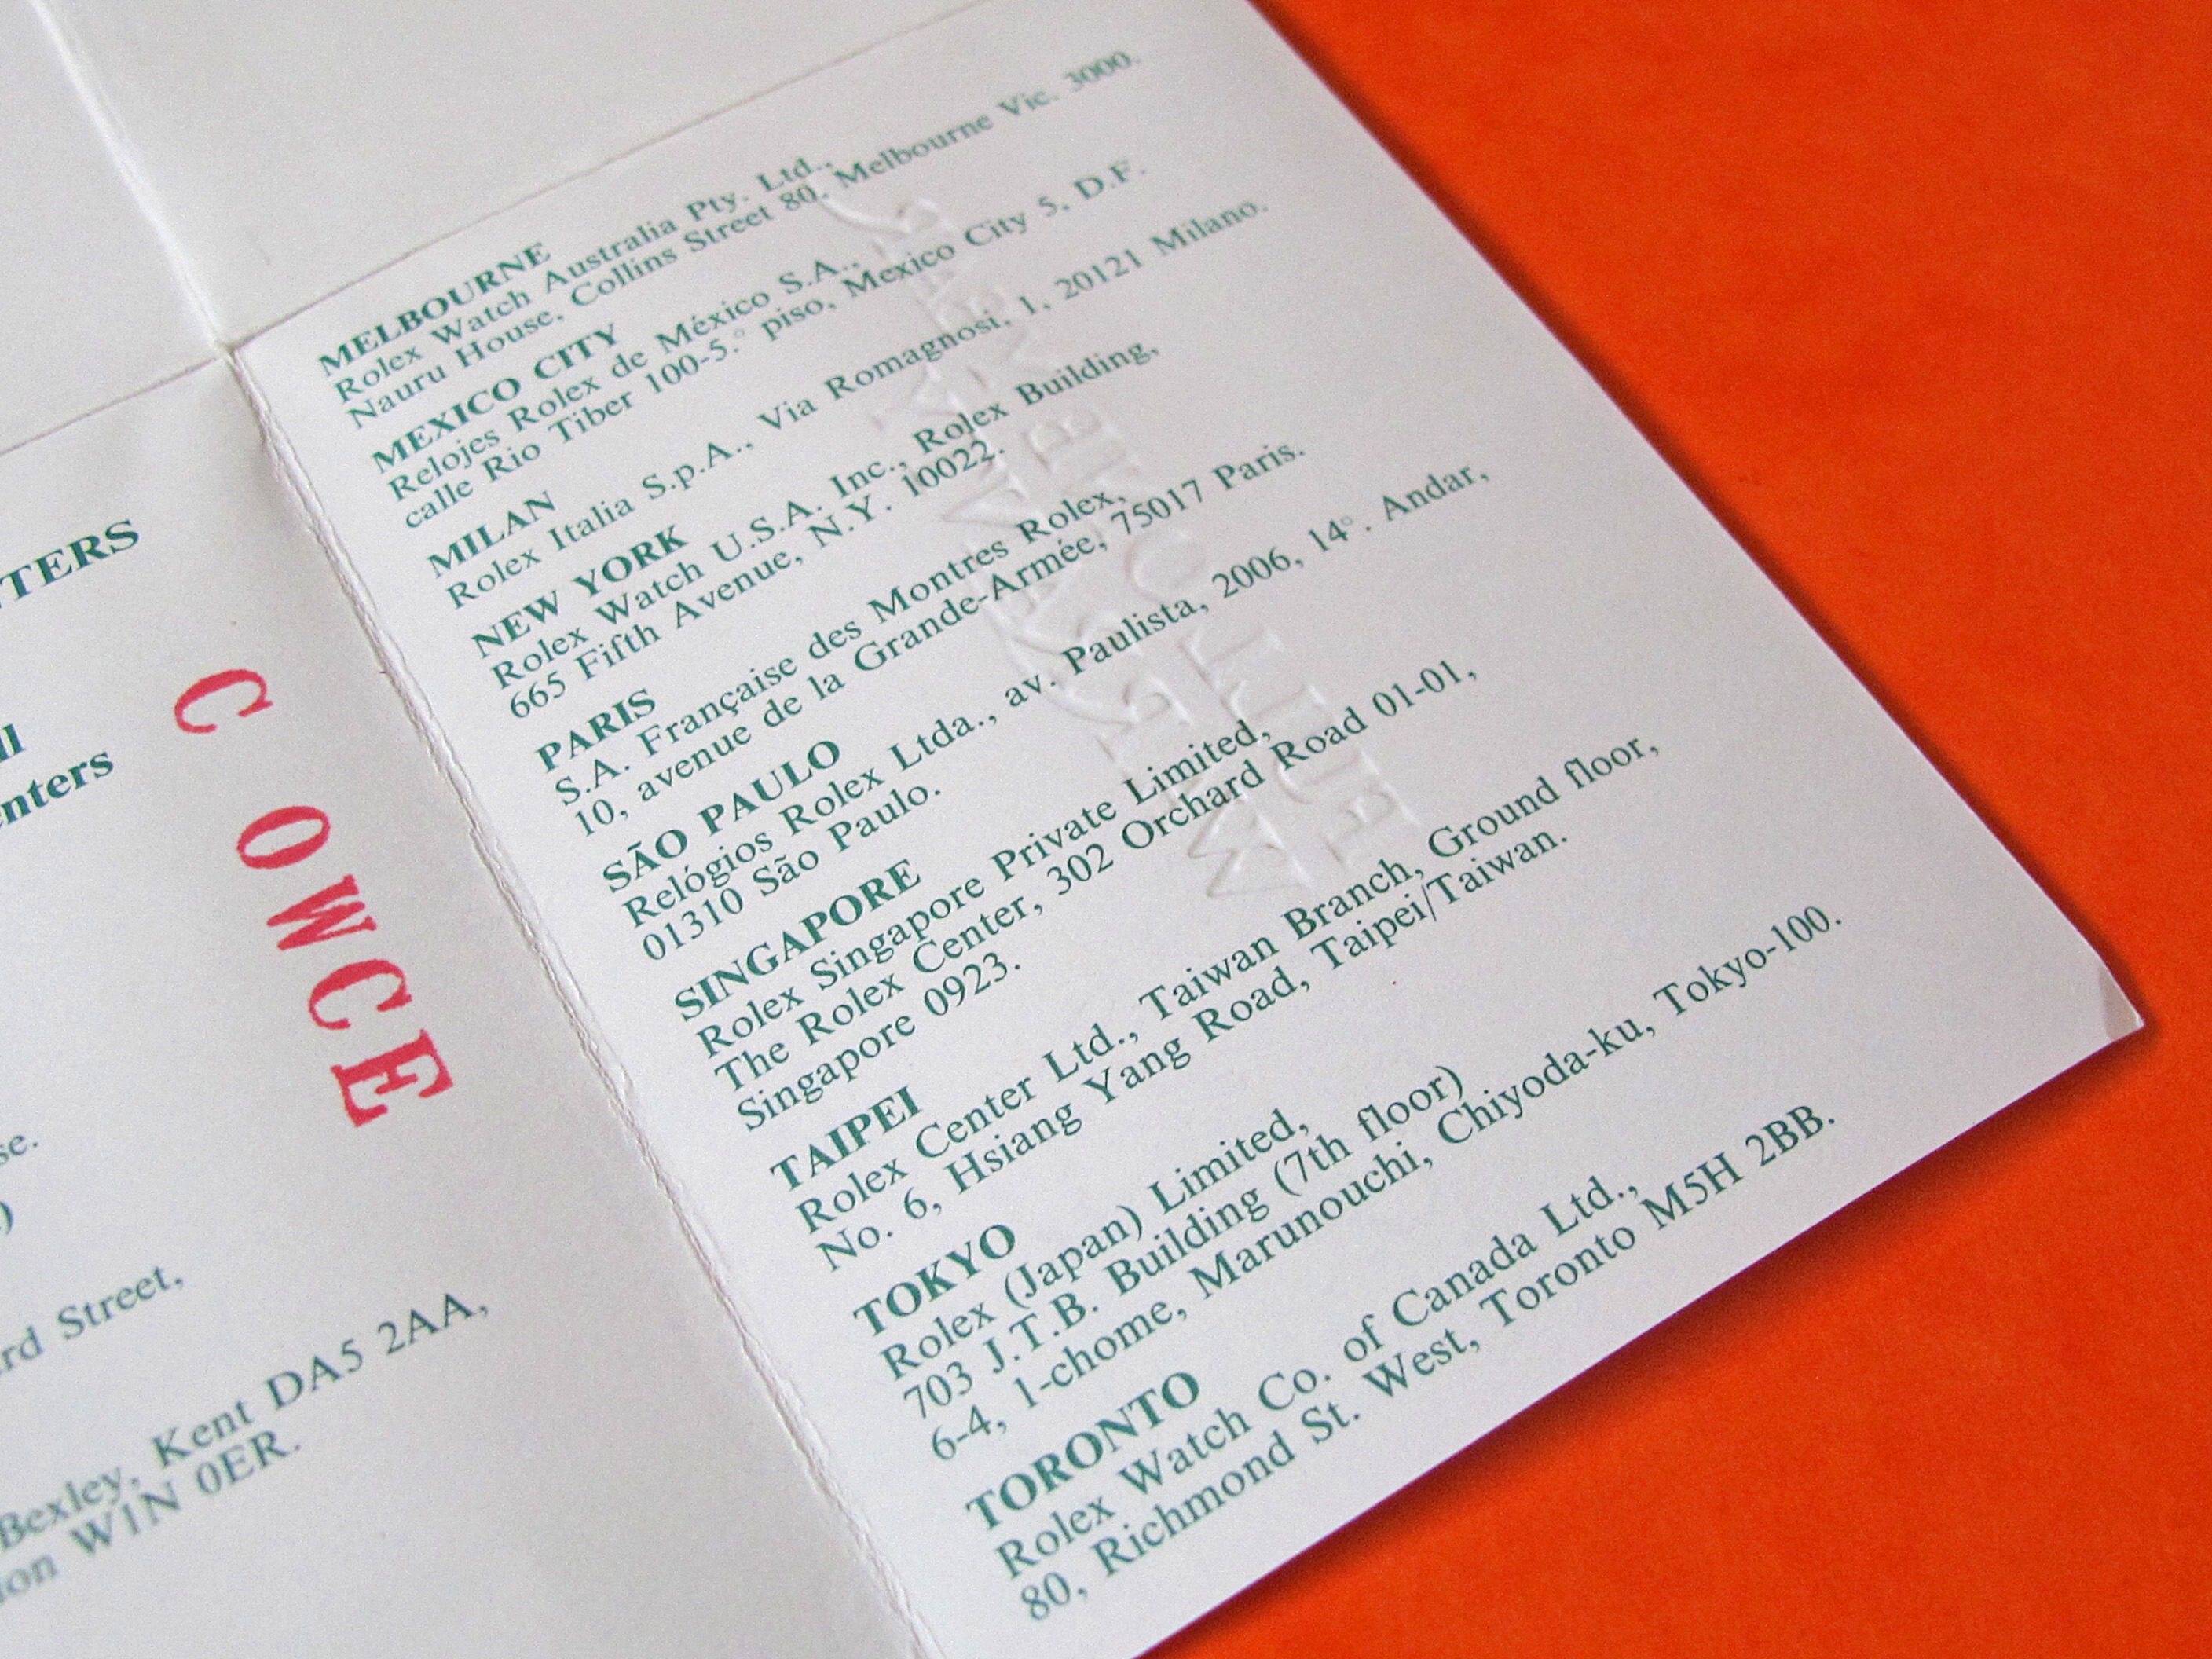 TERS
ll
enters
se.
)
rd Street,
Bexley, Kent DA5 2AA,
on W1N 0ER.
C OWCE
MELBOURNE
Rolex Watch Australia Pty. Ltd.,
Nauru House, Collins Street 80, Melbourne Vic. 3000.
MEXICO CITY
Relojes Rolex de México S.A.,
calle Rio Tiber 100-5.° piso, Mexico City 5, D.F.
MILAN
Rolex Italia S.p.A., Via Romagnosi, 1, 20121 Milano.
NEW YORK
Rolex Watch U.S.A. Inc., Rolex Building,
665 Fifth Avenue, N.Y. 10022.
PARIS
S.A. Française des Montres Rolex,
10, avenue de la Grande-Armée, 75017 Paris.
SÃO PAULO
Relógios Rolex Ltda., av. Paulista, 2006, 14°. Andar,
01310 São Paulo.
SINGAPORE
Rolex Singapore Private Limited,
The Rolex Center, 302 Orchard Road 01-01,
Singapore 0923.
TAIPEI
Rolex Center Ltd., Taiwan Branch, Ground floor,
No. 6, Hsiang Yang Road, Taipei/Taiwan.
TOKYO
Rolex (Japan) Limited,
703 J.T.B. Building (7th floor)
6-4, 1-chome, Marunouchi, Chiyoda-ku, Tokyo-100.
TORONTO
Rolex Watch Co. of Canada Ltd.,
80, Richmond St. West, Toronto M5H 2BB.